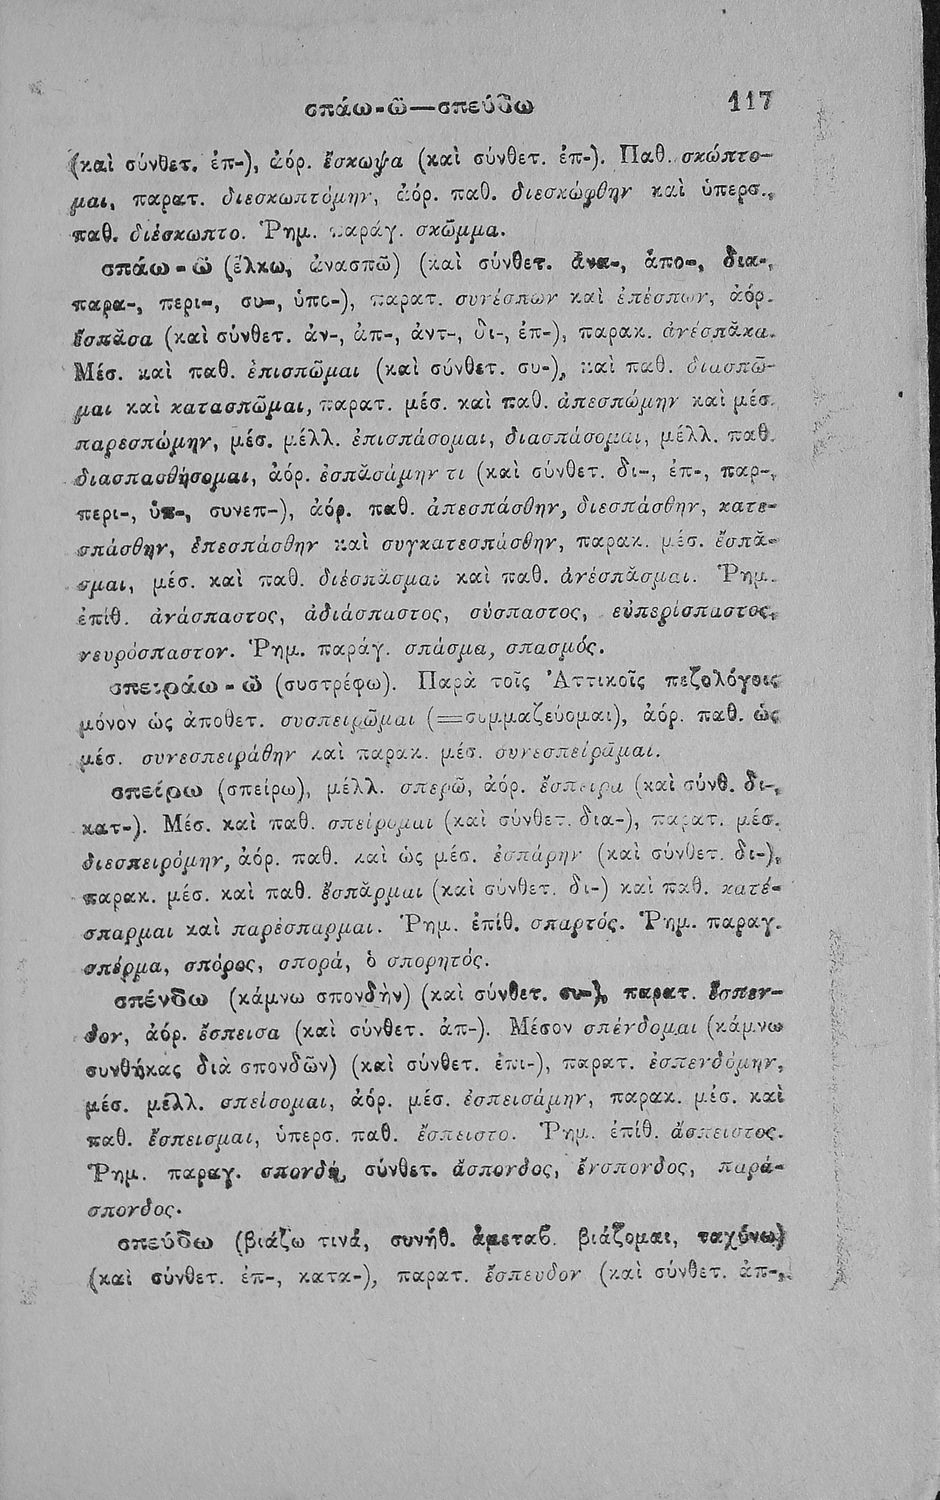 σπάω-ῶ—σπεύδω 117
(καὶ σύνθετ. ἐπ-), ἀόρ. ἔσκωψα (καὶ σύνθετ. ἐπ-). Παθ. σκώπτο-
μαι, παρατ. διεσκωπτόμην, ἀόρ. παθ. διεσκώφθην καὶ ὑπερσ.
παθ. διέσκωπτο. Ῥημ. παράγ. σκῶμμα.
σπάω-ῶ (ἕλκω, ἀνασπῶ) (καὶ σύνθετ. ἀνα-, ἀπο-, δια-,
παρα-, περι-, συ-, ὑπο-), παρατ. συνέσπων καὶ ἐπέσπων, ἀόρ.
ἔσπᾰσα (καὶ σύνθετ. ἀν-, ἀπ-, ἀντ-, δι-, ἐπ-), παρακ. ἀνέσπᾰκα.
Μέσ. καὶ παθ. ἐπισπῶμαι (καὶ σύνθετ. συ-), καὶ παθ. διασπῶ-
μαι καὶ κατασπῶμαι, παρατ. μέσ. καὶ παθ. ἀπεσπώμην καὶ μέσ.
παρεσπώμην, μέσ. μέλλ. ἐπισπάσομαι, διασπάσομαι, μέλλ. παθ.
διασπασθήσομαι, ἀόρ. ἐσπᾰσάμην τι (καὶ σύνθετ. δι-, ἐπ-, παρ-,
περι-, ὑπ-, συνεπ-), ἀόρ. παθ. ἀπεσπάσθην, διεσπάσθην, κατε-
σπάσθην, ἐπεσπάσθην καὶ συγκατεσπάσθην, παρακ. μέσ. ἔσπᾰ-
σμαι, μέσ. καὶ παθ. διέσπᾰσμαι καὶ παθ. ἀνέσπᾰσμαι. Ῥημ.
ἐπίθ. ἀνάσπαστος, ἀδιάσπαστος, σύσπαστος, εὐπερίσπαστος,
νευρόσπαστον. Ῥημ. παράγ. σπάσμα, σπασμός.
σπειράω-ῶ (συστρέφω). Παρὰ τοῖς Ἀττικοῖς πεζολόγοις
μόνον ὡς ἀποθετ. συσπειρῶμαι (=συμμαζεύομαι), ἀόρ. παθ. ὡς
μέσ. συνεσπειράθην καὶ παρακ. μέσ. συνεσπείρᾱμαι.
σπείρω (σπείρω), μέλλ. σπερῶ, ἀόρ. ἔσπειρα (καὶ σύνθ. δι-,
κατ-). Μέσ. καὶ παθ. σπείρομαι (καὶ σύνθετ. δια-), παρατ. μέσ.
διεσπειρόμην, ἀόρ. παθ. καὶ ὡς μέσ. ἐσπάρην (καὶ σύνθετ. δι-),
παρακ. μέσ. καὶ παθ. ἔσπᾰρμαι (καὶ σύνθετ. δι-) καὶ παθ. κατέ-
σπαρμαι καὶ παρέσπαρμαι. Ῥημ. ἐπίθ. σπαρτός. Ῥημ. παραγ.
σπέρμα, σπόρος, σπορά, ὁ σπορητός.
σπένδω (κάμνω σπονδὴν) (καὶ σύνθετ. συ-), παρατ. ἔσπεν-
δον, ἀόρ. ἔσπεισα (καὶ σύνθετ. ἀπ-). Μέσον σπένδομαι (κάμνω
συνθήκας διὰ σπονδῶν) (καὶ σύνθετ. ἐπι-), παρατ. ἐσπενδόμην,
μέσ. μέλλ. σπείσομαι, ἀόρ. μέσ. ἐσπεισάμην, παρακ. μέσ. καὶ
παθ. ἔσπεισμαι, ὑπερσ. παθ. ἔσπειστο. Ῥημ. ἐπίθ. ἄσπειστος.
Ῥημ. παραγ. σπονδή, σύνθετ. ἄσπονδος, ἔνσπονδος, παρά-
σπονδος.
σπεύδω (βιάζω τινά, συνήθ. ἀμεταβ. βιάζομαι, ταχύνω)
(καὶ σύνθετ. ἐπ-, κατα-), παρατ. ἔσπευδον (καὶ σύνθετ. ἀπ-,